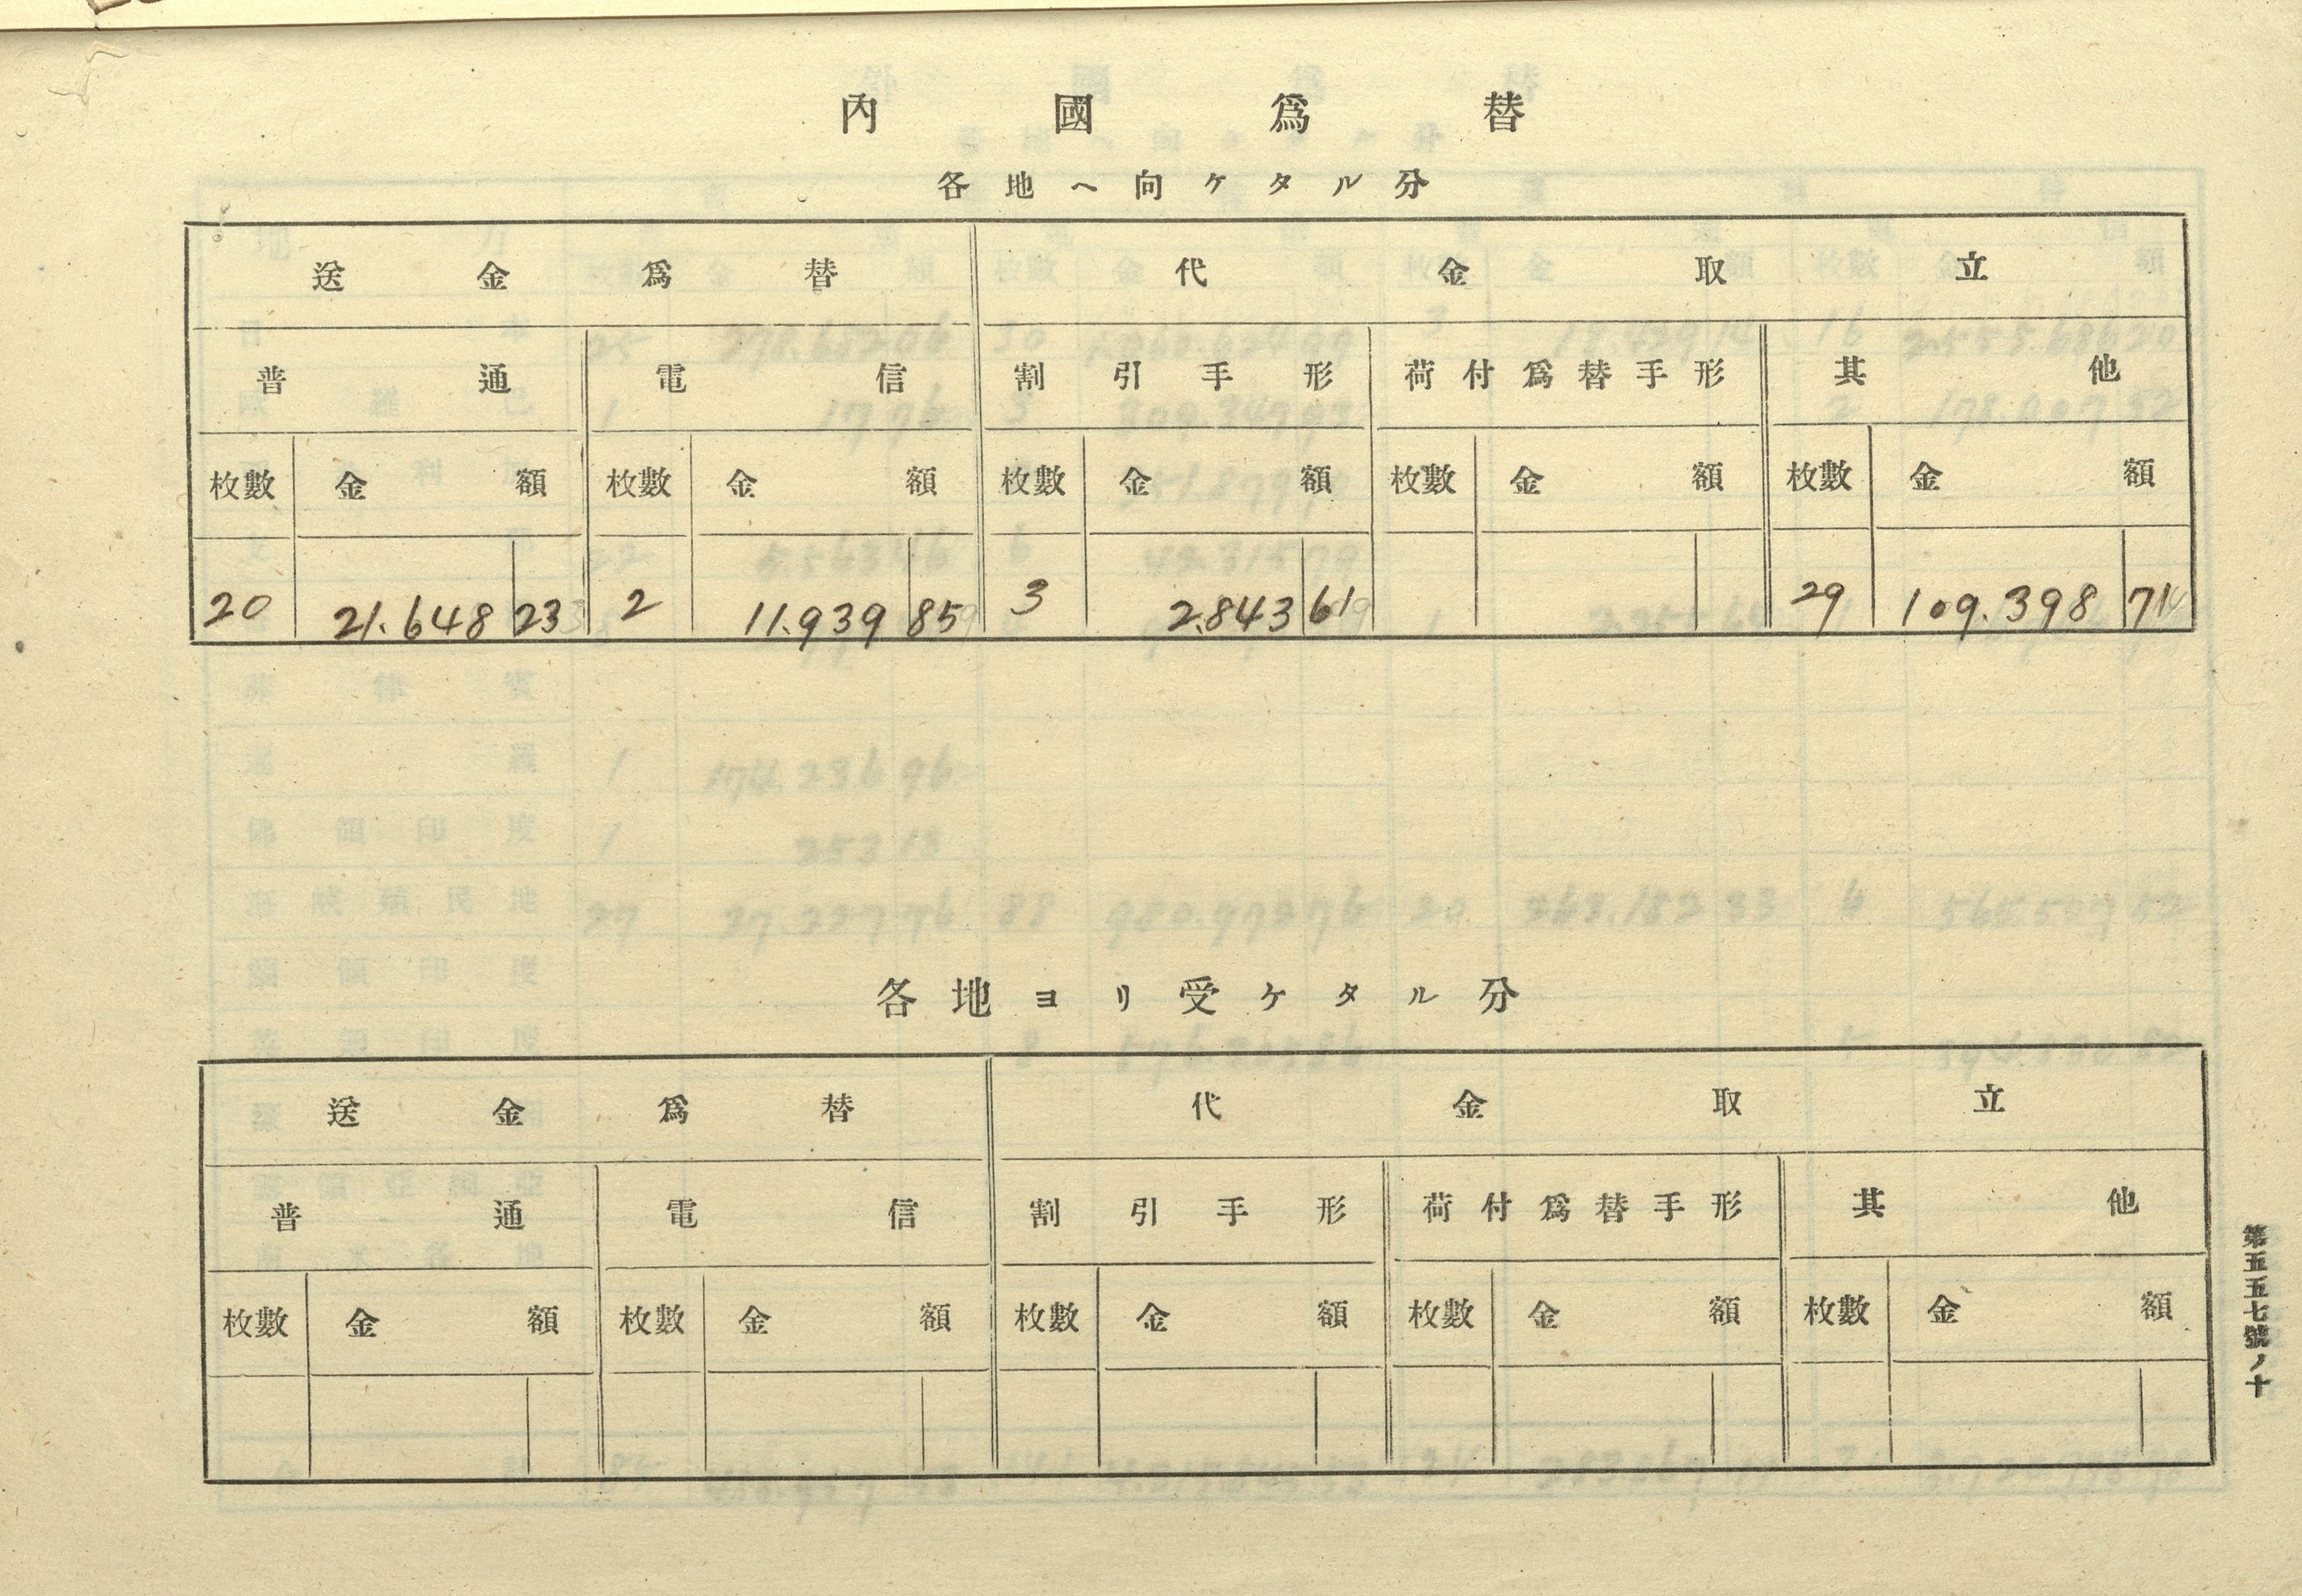 內國爲替
各地へ向ケタル分
送金爲替 代金取立
普通 電信 割引手形 荷付爲替手形 其他
枚數 金額 枚數 金額 枚數 金額 枚數 金額 枚數 金額
20 21.648 23 2 11.939 85 3 2.843 61 29 109.398 71
各地ヨリ受ケタル分
送金爲替 代金取立
普通 電信 割引手形 荷付爲替手形 其他
枚數 金額 枚數 金額 枚數 金額 枚數 金額 枚數 金額
第五五七號ノ十